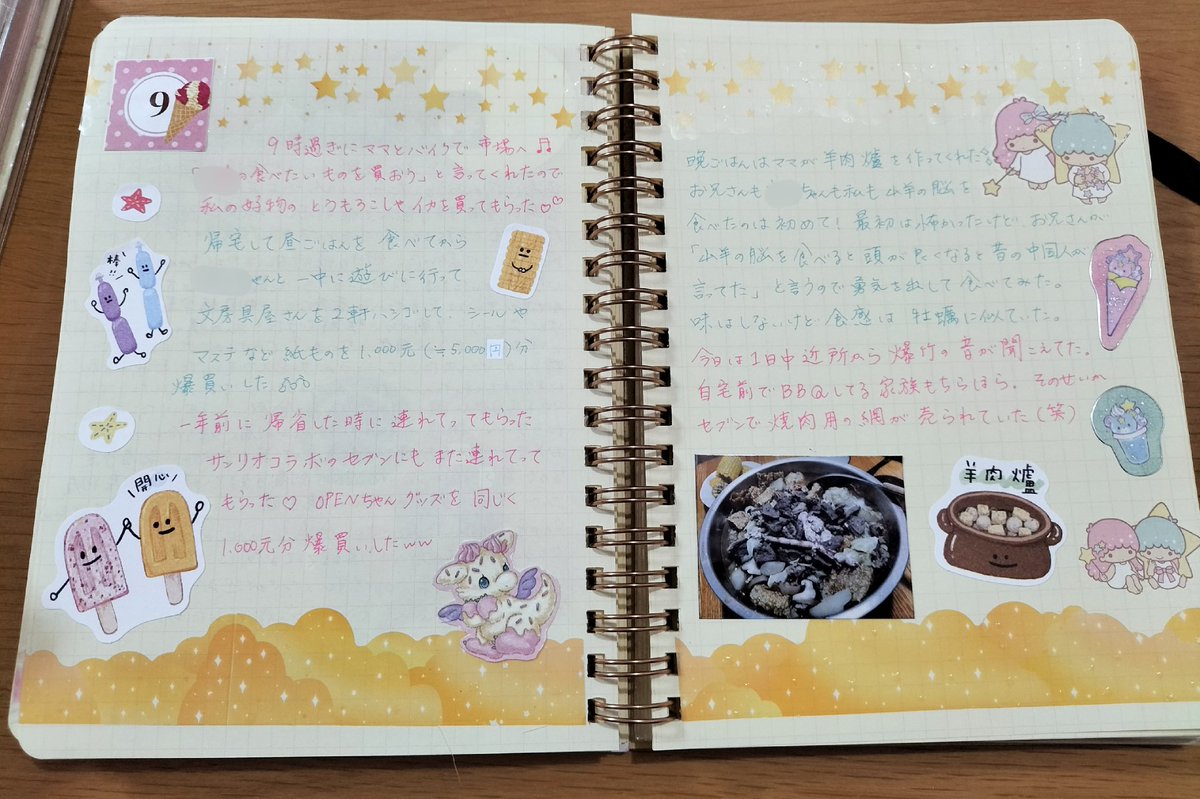 9
9時過ぎにママとバイクで市場へ♫
「の食べたいものを買おう」と言ってくれたので
私の好物のとうもろこしやイカを買ってもらった♡♡
帰宅して昼ごはんを食べてから
ちゃんと一中に遊びに行って
文房具屋さんを2軒ハシゴして、シールや
マステなど紙ものを1,000元(≒5,000円)分
爆買いした
一年前に帰省した時に連れてってもらった
サンリオコラボのセブンにもまた連れてって
もらった♡ OPENちゃんグッズを同じく
1,000元分爆買いしたww
棒!
開心
晩ごはんはママが羊肉爐を作ってくれた
お兄さんもちゃんも私も山羊の脳を
食べたのは初めて!最初は怖かったけど、お兄さんが
「山羊の脳を食べると頭が良くなると昔の中国人が
言ってた」と言うので勇気を出して食べてみた。
味はしないけど食感は牡蠣に似ていた。
今日は1日中近所から爆竹の音が聞こえてた。
自宅前でBBQしてる家族もちらほら。そのせいか
セブンで焼肉用の網が売られていた(笑)
羊肉爐